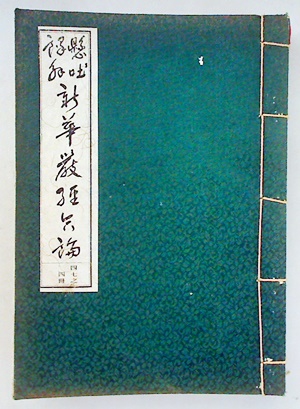 懸吐
譯解
新華嚴經合論
四七之
四冊